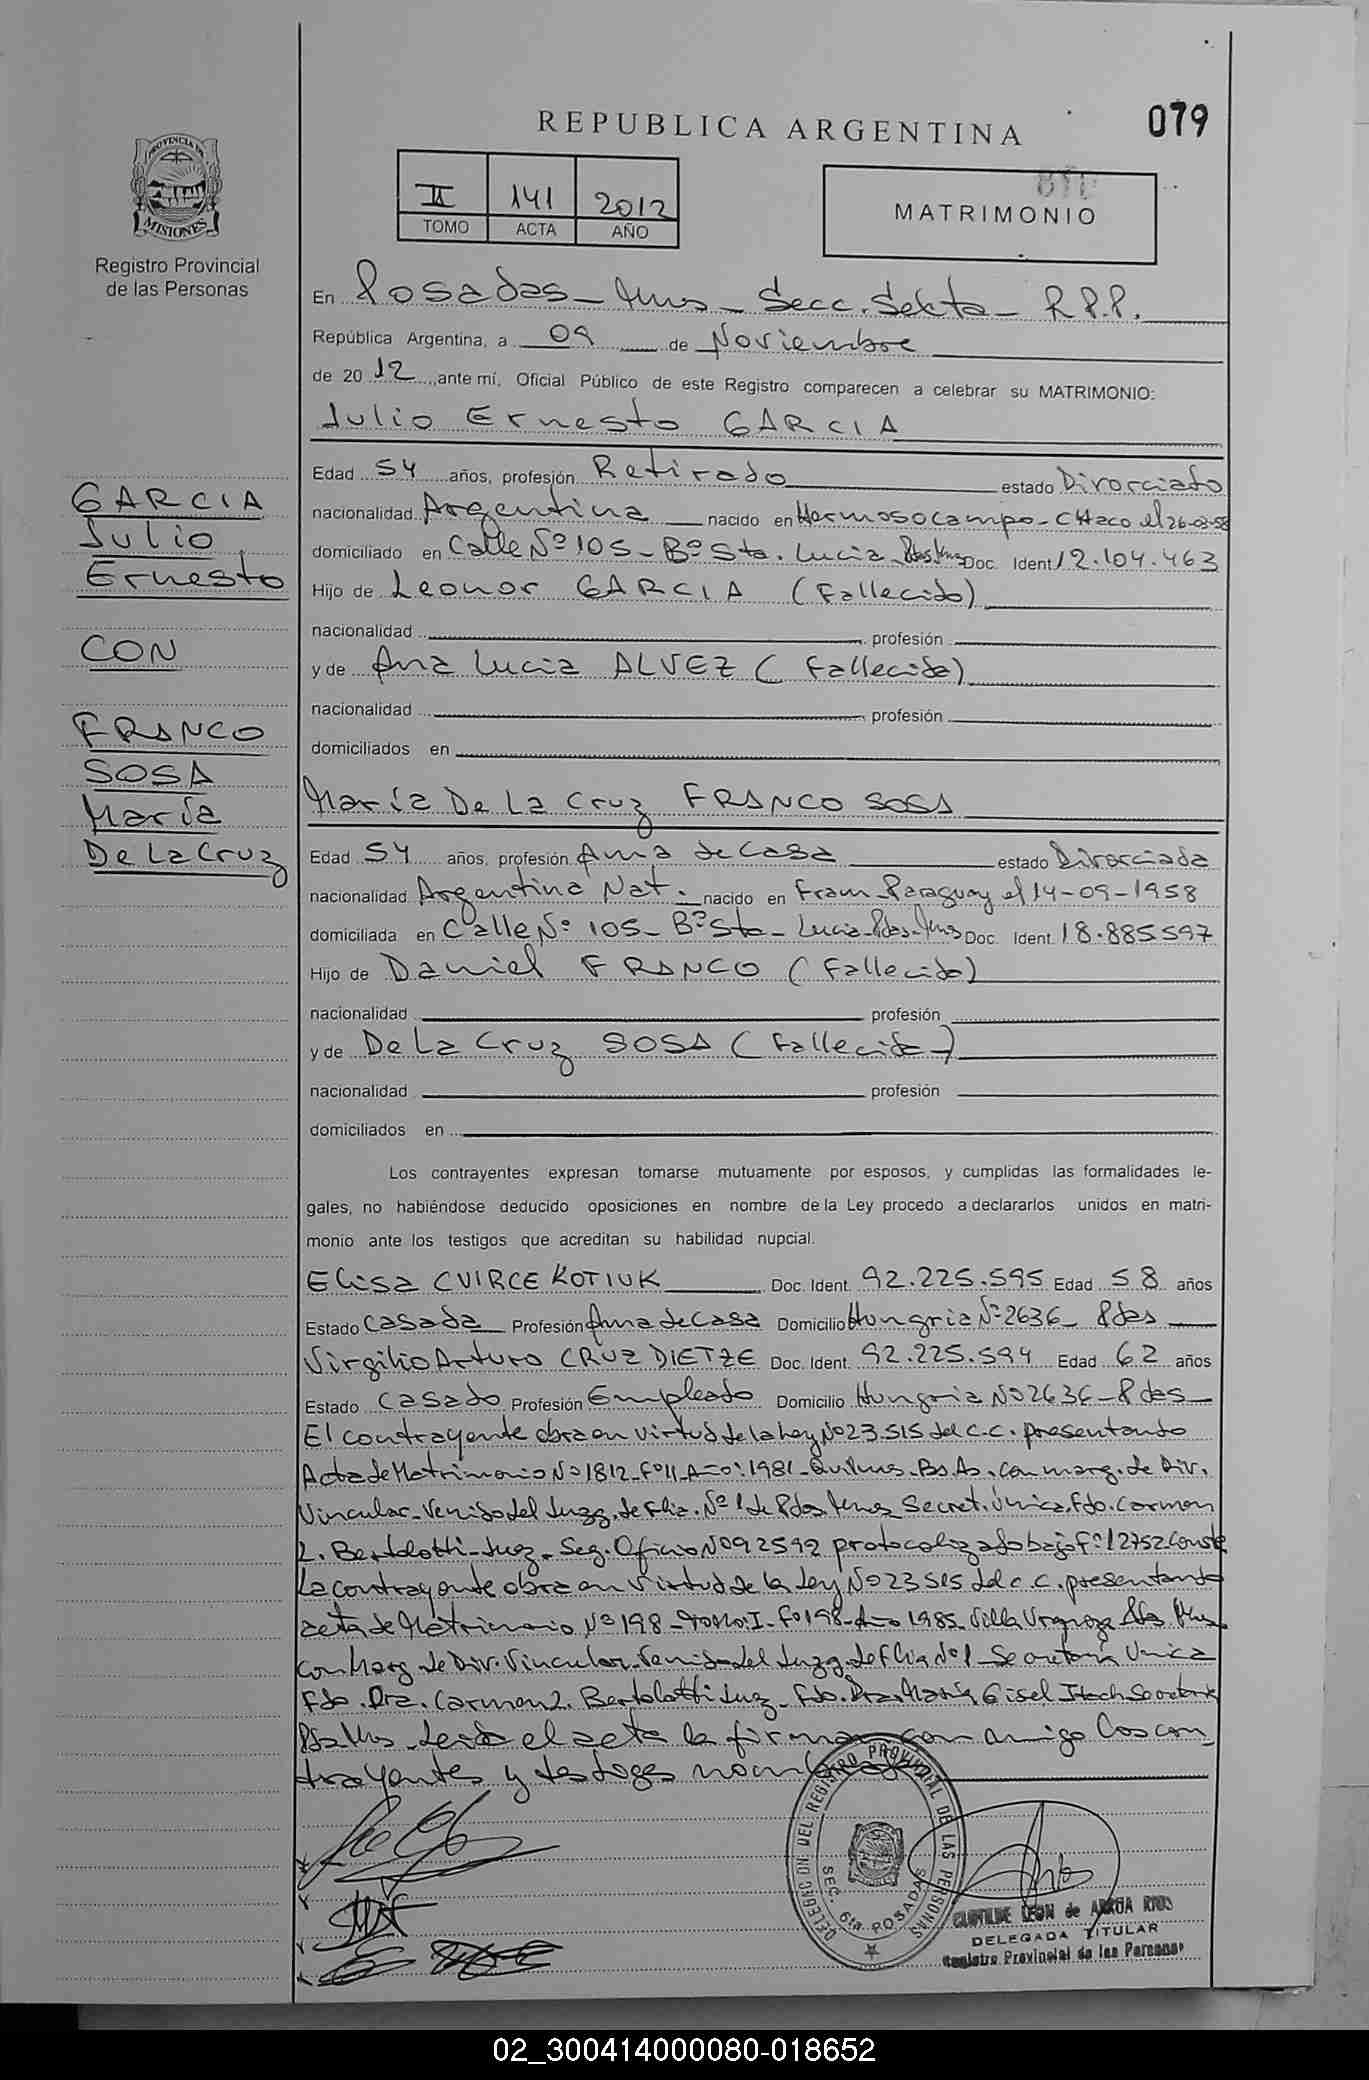 REPUBLICA ARGENTINA
079
PROVINCIA DE
MISIONES
Registro Provincial
de las Personas
II 141 2012
TOMO ACTA AÑO
MATRIMONIO
En Posadas - Mnes - Secc. Sexta - R.P.P.
República Argentina, a 09 de Noviembre
de 20 12, ante mí, Oficial Público de este Registro comparecen a celebrar su MATRIMONIO:
Julio Ernesto GARCIA
GARCIA
Julio
Ernesto
CON
FRANCO
SOSA
María
De La Cruz
Edad 54 años, profesión Retirado estado Divorciado
nacionalidad Argentina nacido en Hermoso campo - CHaco el 26-03-58
domiciliado en Calle Nº 105 - Bº Sta. Lucia - Pdas Mnes Doc. Ident 12.104.463
Hijo de Leonor GARCIA (Fallecido)
nacionalidad profesión
y de Ana Lucia ALVEZ (Fallecida)
nacionalidad profesión
domiciliados en
María De La Cruz FRANCO SOSA
Edad 54 años, profesión Ama de casa estado Divorciada
nacionalidad Argentina Nat. nacido en Fram - Paraguay el 14-09-1958
domiciliada en Calle Nº 105 - Bº Sta - Lucia - Pdas - Mnes Doc. Ident. 18.885.597
Hijo de Daniel FRANCO (Fallecido)
nacionalidad profesión
y de De La Cruz SOSA (Fallecida)
nacionalidad profesión
domiciliados en
Los contrayentes expresan tomarse mutuamente por esposos, y cumplidas las formalidades le-
gales, no habiéndose deducido oposiciones en nombre de la Ley procedo a declararlos unidos en matri-
monio ante los testigos que acreditan su habilidad nupcial.
Elisa CVIRCE KOTIUK Doc. Ident. 92.225.595 Edad 58 años
Estado Casada Profesión Ama de Casa Domicilio Hungria Nº 2636 - Pdas
Virgilio Arturo CRUZ DIETZE Doc. Ident. 92.225.594 Edad 62 años
Estado Casado Profesión Empleado Domicilio Hungria Nº 2636 - Pdas -
El contrayente obra en virtud de la ley Nº 23.515 del c.c. presentando
Acta de Matrimonio Nº 1812 - Fº 11 - Año: 1981 - Quilmes - Bs. As. con marg. de Div.
Vincular - Venido del Juzg. de Flia. Nº 1 de Pdas Mnes Secret. Unica. Fdo. Carmen
L. Bertolotti - Juez - Seg. Oficio Nº 92592 protocolizado bajo Fº: 12752 Conste
La contrayente obra en virtud de la ley Nº 23515 del c.c. presentando
acta de Matrimonio Nº 198 - Tomo: I - Fº 198 - Año 1985 - Villa Urquiza Pdas. Mnes
con Marg. de Div. Vincular - Venido del Juzg. de Flia Nº 1 - Secretaría Unica
Fdo. Dra. Carmen L. Bertolotti Juez - Fdo. Dra. María Gisel Secretaria
Leida el acta la firman con migo los con
trayentes y testigos nombrados
DELEGACION DEL REGISTRO PROVINCIAL DE LAS PERSONAS
SEC. 6ta POSADAS
CLOTILDE LEON de ARRUA RIOS
DELEGADA TITULAR
Registro Provincial de las Personas
02_300414000080-018652